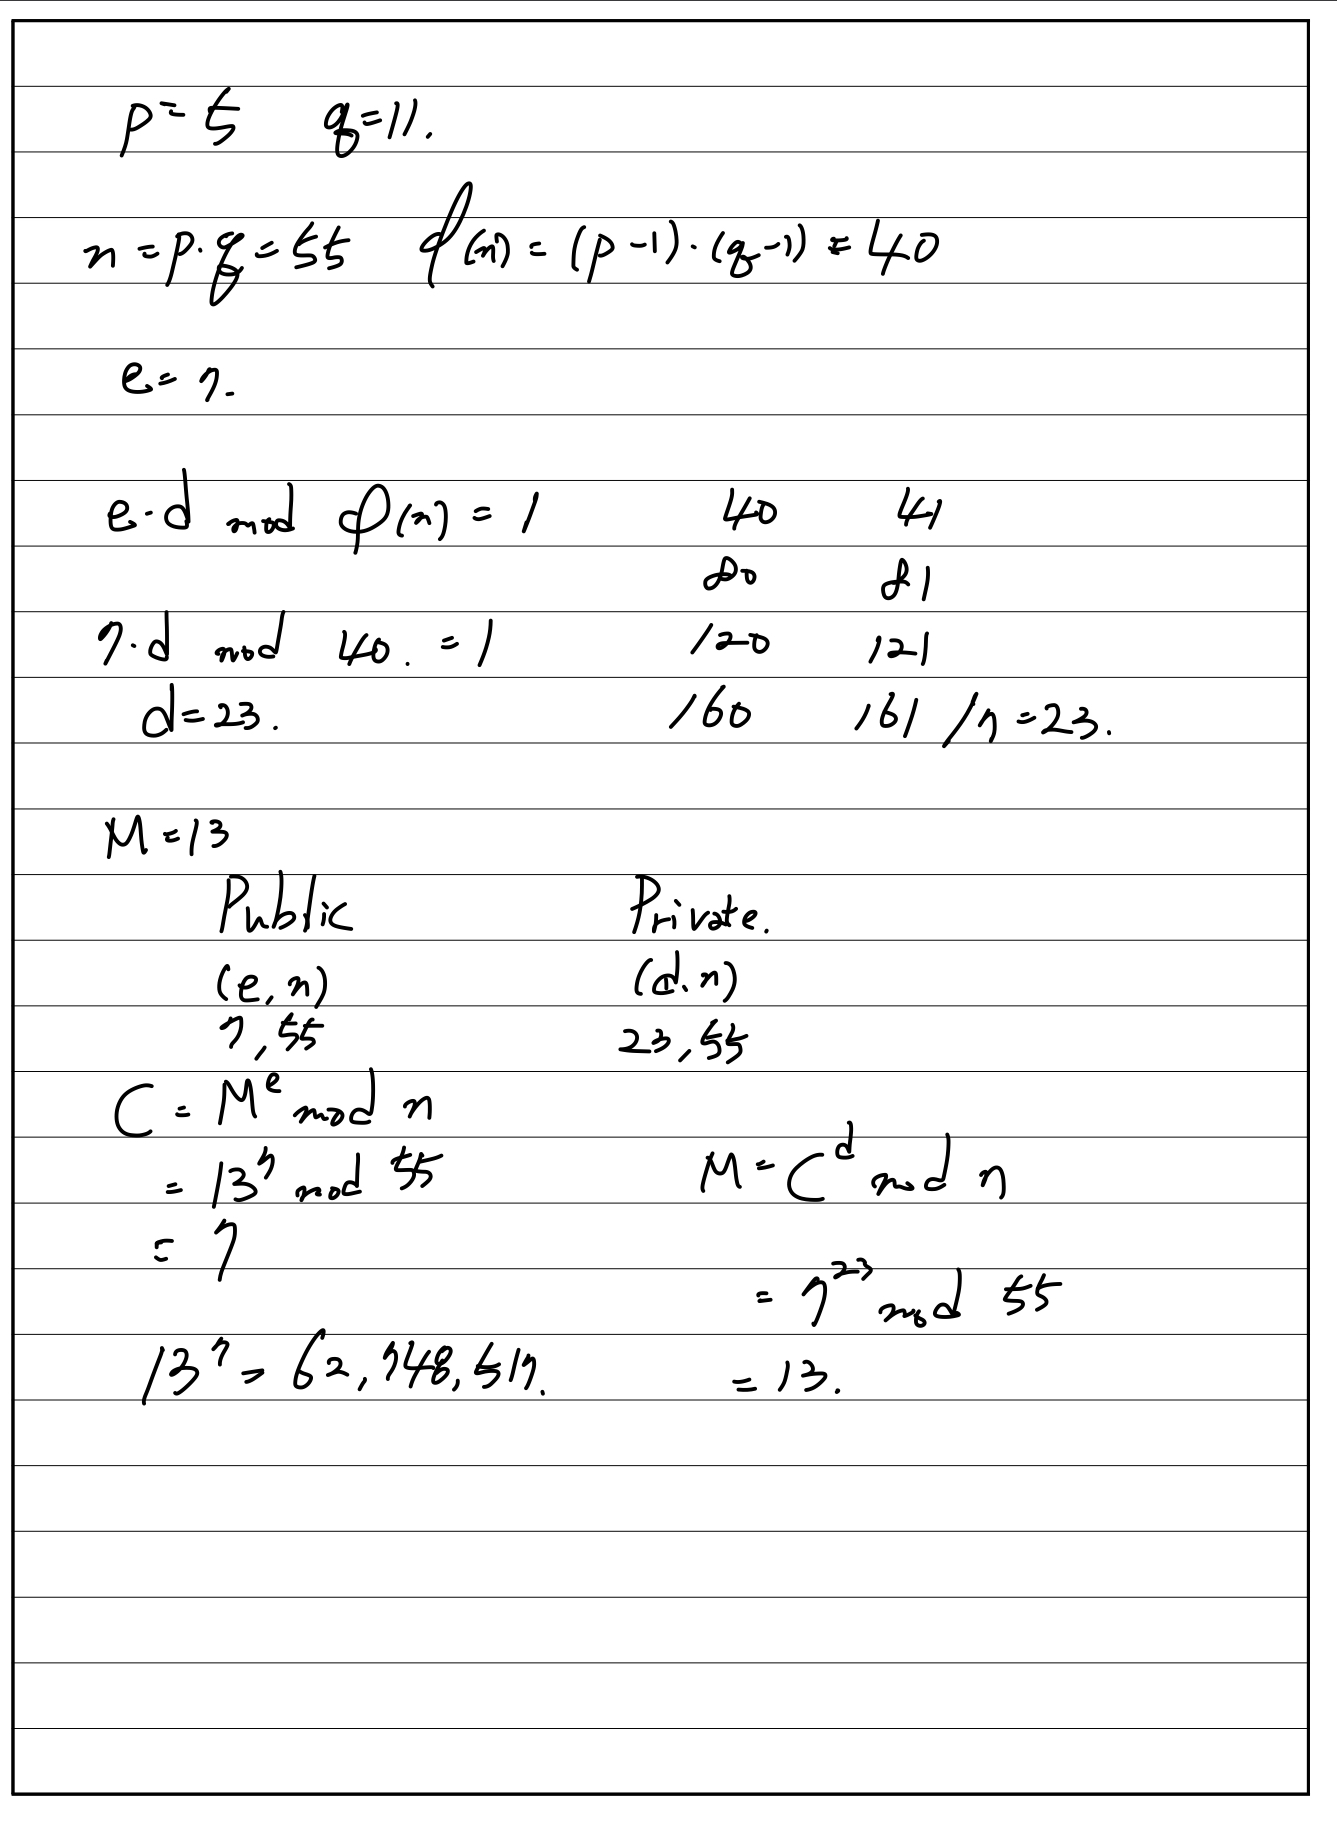 p = 5 q = 11.
n = p · q = 55 φ(n) = (p - 1) · (q - 1) = 40
e = 7.
e · d mod φ(n) = 1 40 41
80 81
7 · d mod 40. = 1 120 121
d = 23. 160 161 / 7 = 23.
M = 13
Public Private.
(e, n) (d. n)
7, 55 23, 55
C = M^e mod n
= 13^7 mod 55 M = C^d mod n
= 7
= 7^23 mod 55
13^7 = 62,748,517. = 13.